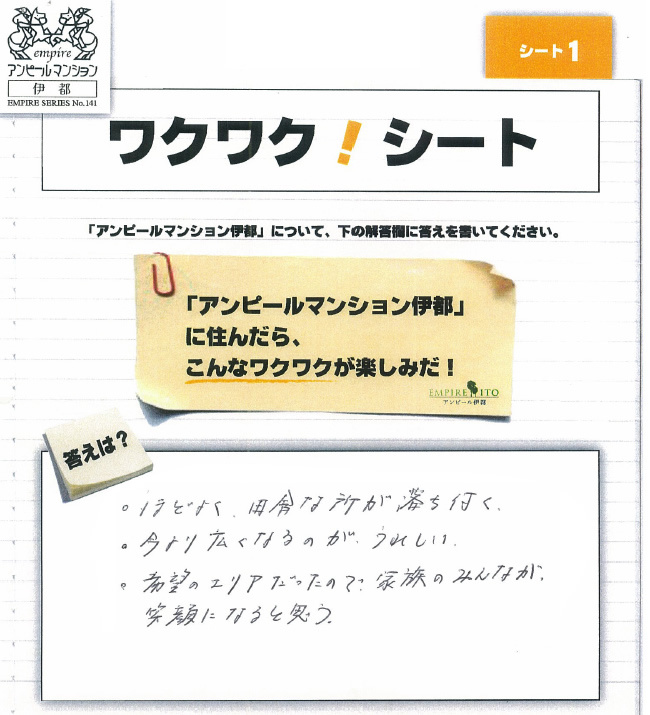 empire
アンピールマンション
伊都
EMPIRE SERIES No.141
シート1
ワクワク!シート
「アンピールマンション伊都」について、下の解答欄に答えを書いてください。
「アンピールマンション伊都」
に住んだら、
こんなワクワクが楽しみだ!
EMPIRE ITO
アンピール伊都
答えは?
。ほどよく、田舎な所が落ち付く。
。今より広くなるのが、うれしい。
。希望のエリアだったので、家族のみんなが、
笑顔になると思う。